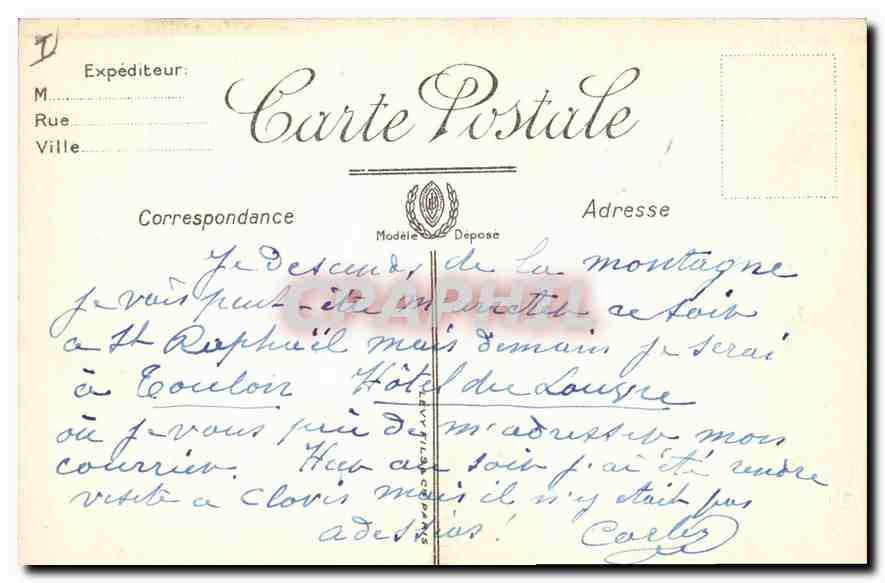 Expéditeur:
M
Rue
Ville
Carte Postale
Correspondance
Adresse
Modèle Déposé
Je descends de la montagne
je vais peut-être m'arrêter ce soir
a St Raphaël mais demain je serai
à Toulon Hôtel du Louvre
où je vous prie de m'adresser mon
courrier. Hier au soir j'ai été rendre
visite a Clovis mais il n'y était pas
adessias!
LEVY FILS & CO PARIS
CPAPHIL